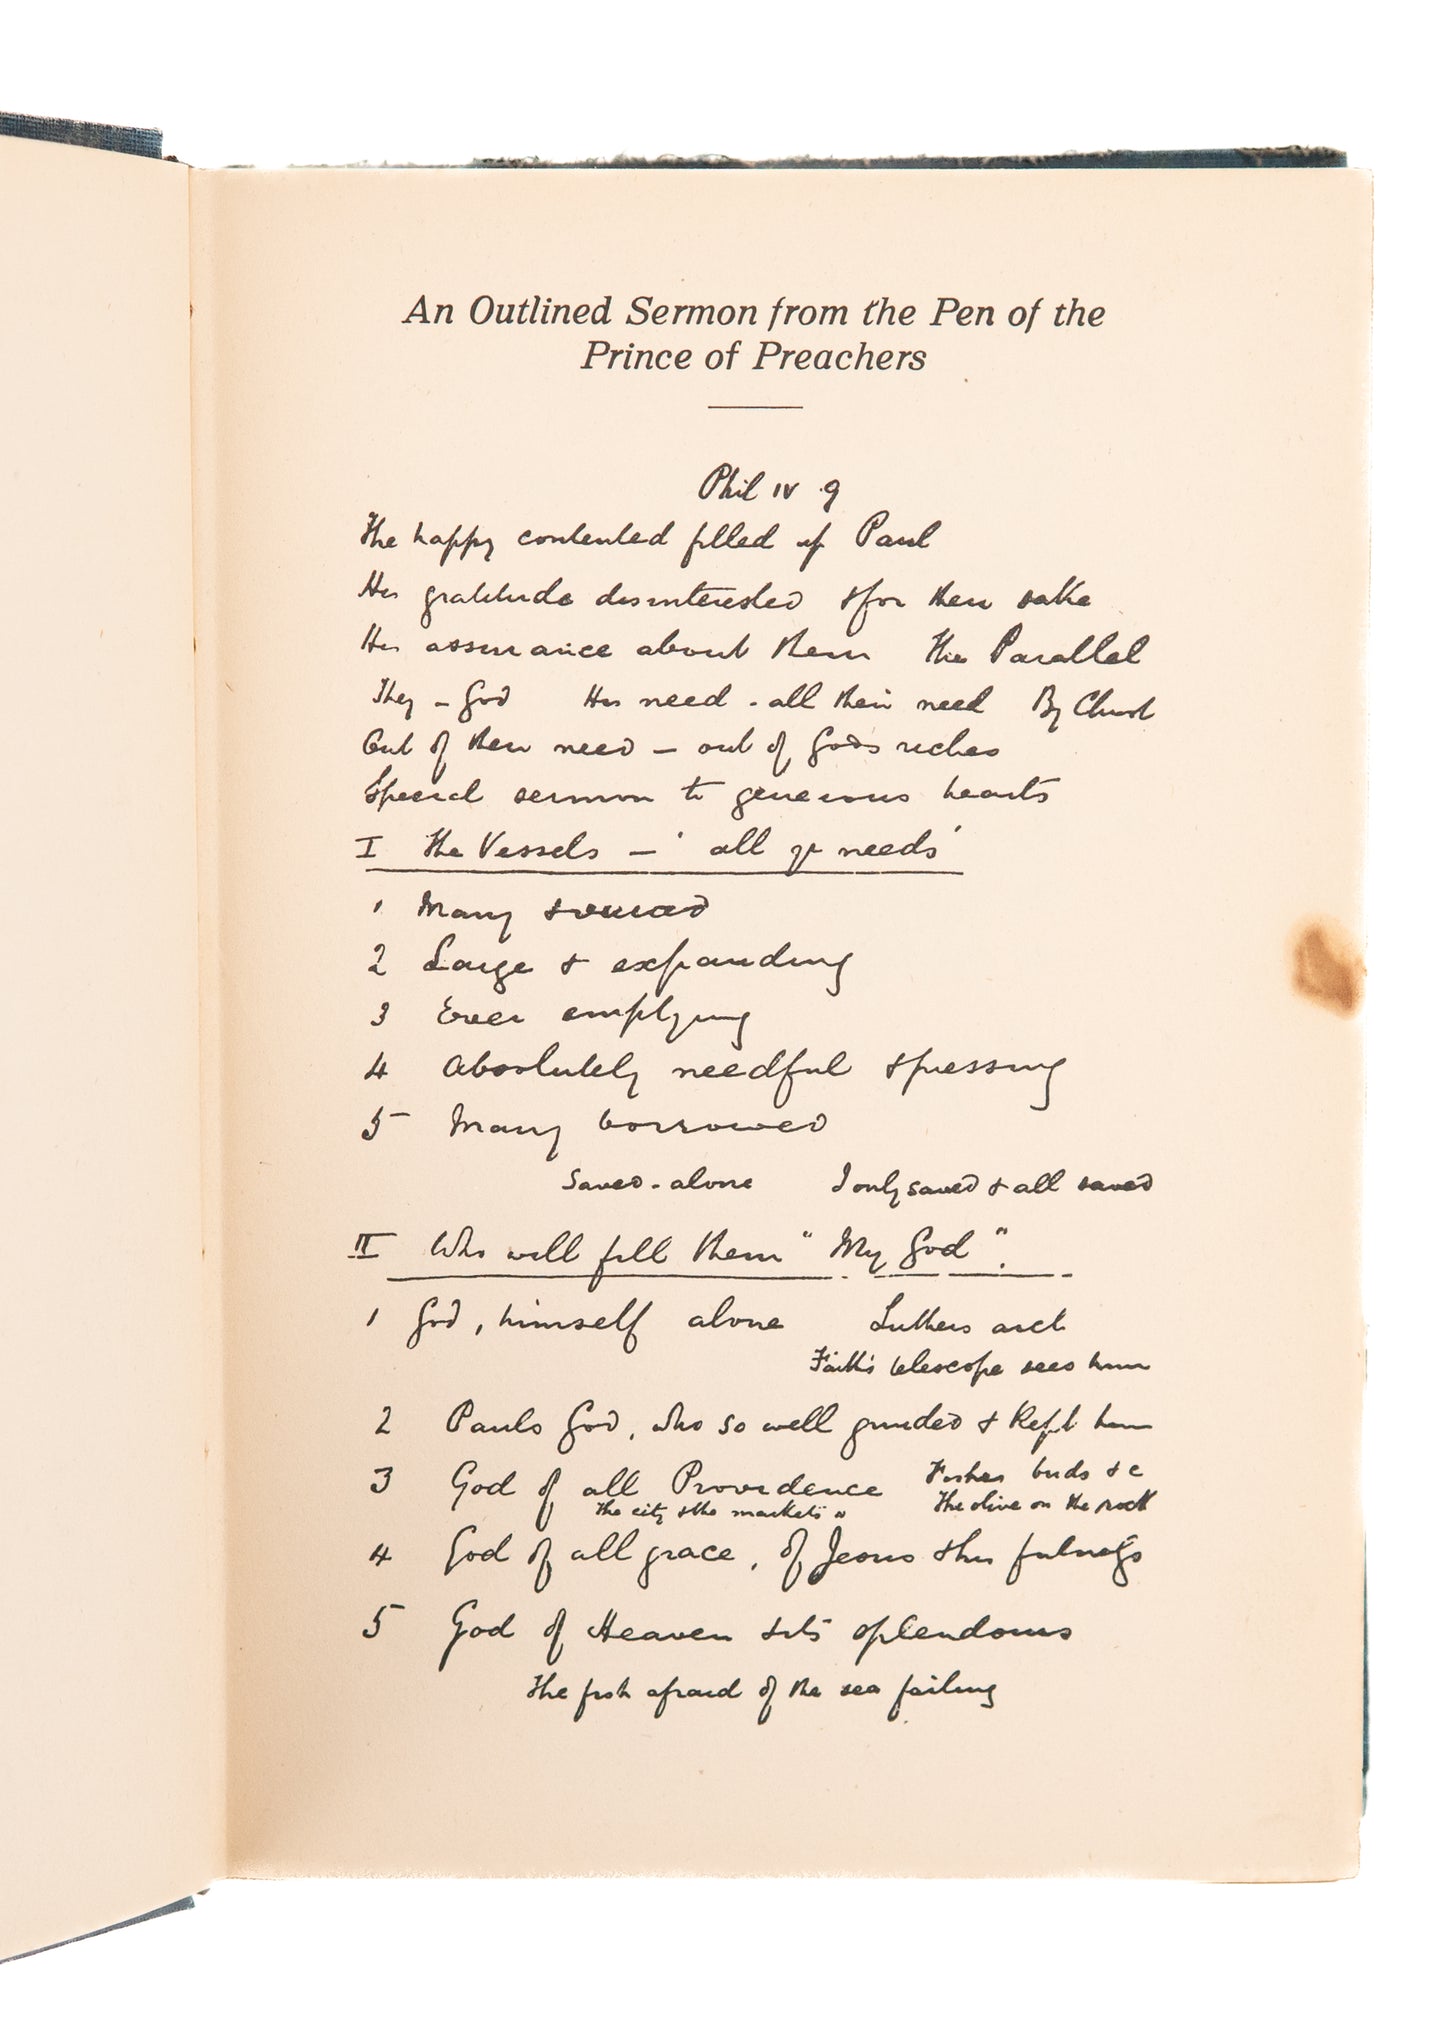 An Outlined Sermon from the Pen of the
Prince of Preachers
Phil IV 9
The happy contented filled up Paul
His gratitude disinterested & for their sake
His assurance about them The Parallel
They – God His need - all their need By Christ
Out of their need – out of Gods riches
Special sermon to generous hearts
I The Vessels – ' all yr needs'
1 Many & varied
2 Large & expanding
3 Ever emptying
4 Absolutely needful & pressing
5 Many borrowed
Saved - alone I only saved & all saved
II Who will fill them " My God ".
1 God, himself alone Luthers
Faith's telescope sees him
2 Pauls God, who so well guided & kept him
3 God of all Providence Fishes birds & c
The city & the markets " The olive on the rock
4 God of all grace, of Jesus & his fulness
5 God of Heaven & its splendours
The fish afraid of the sea failing